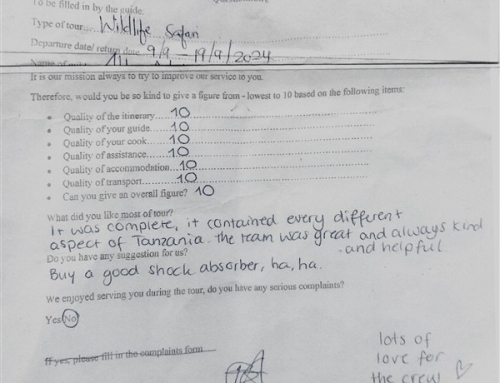 To be filled in by the guide:
Type of tour..... Wildlife Safari
Departure date/ return date 9/9 – 19/9/2024
It is our mission always to try to improve our service to you.
Therefore, would you be so kind to give a figure from - lowest to 10 based on the following items:
• Quality of the itinerary..... 10
• Quality of your guide..... 10
• Quality of your cook..... 10
• Quality of assistance..... 10
• Quality of accommodation..... 10
• Quality of transport..... 10
• Can you give an overall figure? 10
What did you like most of tour?
It was complete, it contained every different
aspect of Tanzania. The team was great and always kind
and helpful.
Do you have any suggestion for us?
Buy a good shock absorber, ha, ha.
We enjoyed serving you during the tour, do you have any serious complaints?
Yes/No
If yes, please fill in the complaints form
lots of
love for
the crew ♡